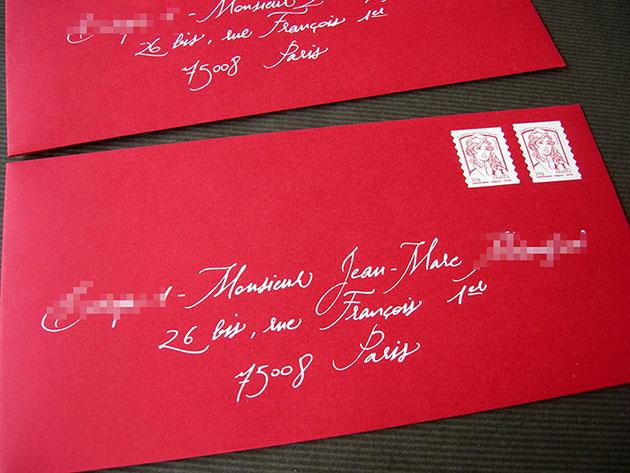 - Monsieur
26 bis, rue François 1er
75008 Paris
20g FRANCE
20g FRANCE
- Monsieur Jean-Marc
26 bis, rue François 1er
75008 Paris